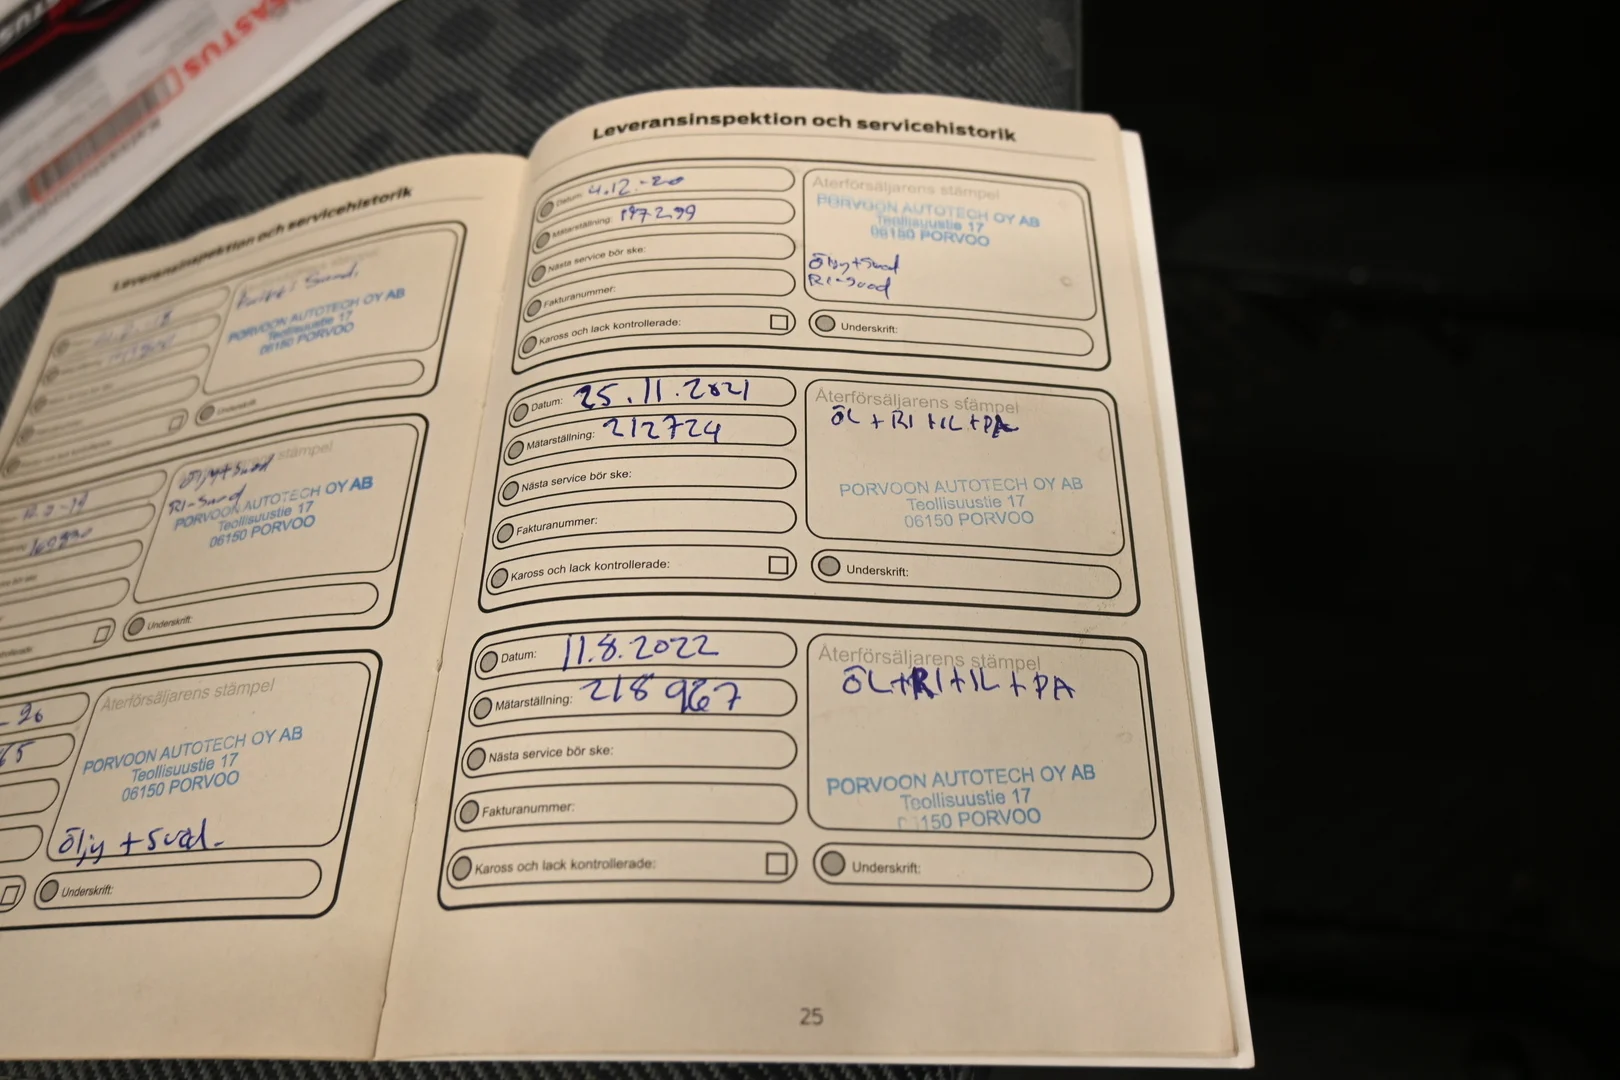 Leveransinspektion och servicehistorik
PORVOON AUTOTECH OY AB
Teollisuustie 17
06150 PORVOO
Underskrift:
stämpel
Öljy+Suod
RI-Suod
PORVOON AUTOTECH OY AB
Teollisuustie 17
06150 PORVOO
Underskrift:
Återförsäljarens stämpel
PORVOON AUTOTECH OY AB
Teollisuustie 17
06150 PORVOO
Öljy + Suod.
Underskrift:
Leveransinspektion och servicehistorik
Datum: 4.12.-20
Mätarställning: 197299
Nästa service bör ske:
Fakturanummer:
Kaross och lack kontrollerade:
Återförsäljarens stämpel
PORVOON AUTOTECH OY AB
Teollisuustie 17
06150 PORVOO
Öljy+Suod
RI-Suod
Underskrift:
Datum: 25.11.2021
Mätarställning: 212724
Nästa service bör ske:
Fakturanummer:
Kaross och lack kontrollerade:
Återförsäljarens stämpel
ÖL + RI + IL + PA
PORVOON AUTOTECH OY AB
Teollisuustie 17
06150 PORVOO
Underskrift:
Datum: 11.8.2022
Mätarställning: 218967
Nästa service bör ske:
Fakturanummer:
Kaross och lack kontrollerade:
Återförsäljarens stämpel
ÖL+RI+IL+PA
PORVOON AUTOTECH OY AB
Teollisuustie 17
150 PORVOO
Underskrift:
25